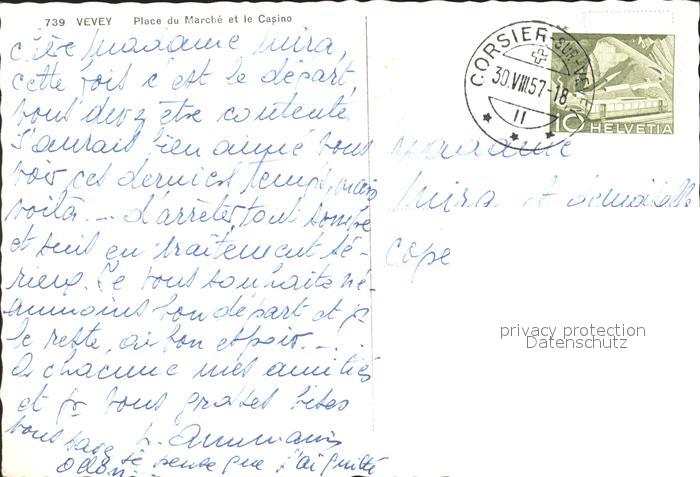 739 VEVEY Place du Marché et le Casino
CORSIER-SUR-VEVEY
30.VIII.57-18
II
10 HELVETIA
Madame Mira,
cette fois c'est le départ,
vous devez être contente.
J'aurais bien aimé vous
voir ces derniers temps, mais
voilà... tout
et suis en traitement sé-
rieux. Je vous souhaite né-
anmoins bon départ et je
le reste, au bon espoir...
A chacune mes amitiés
et je vous grosses bises
vous
se pense que j'ai quitté
Madame
Mira et
privacy protection
Datenschutz